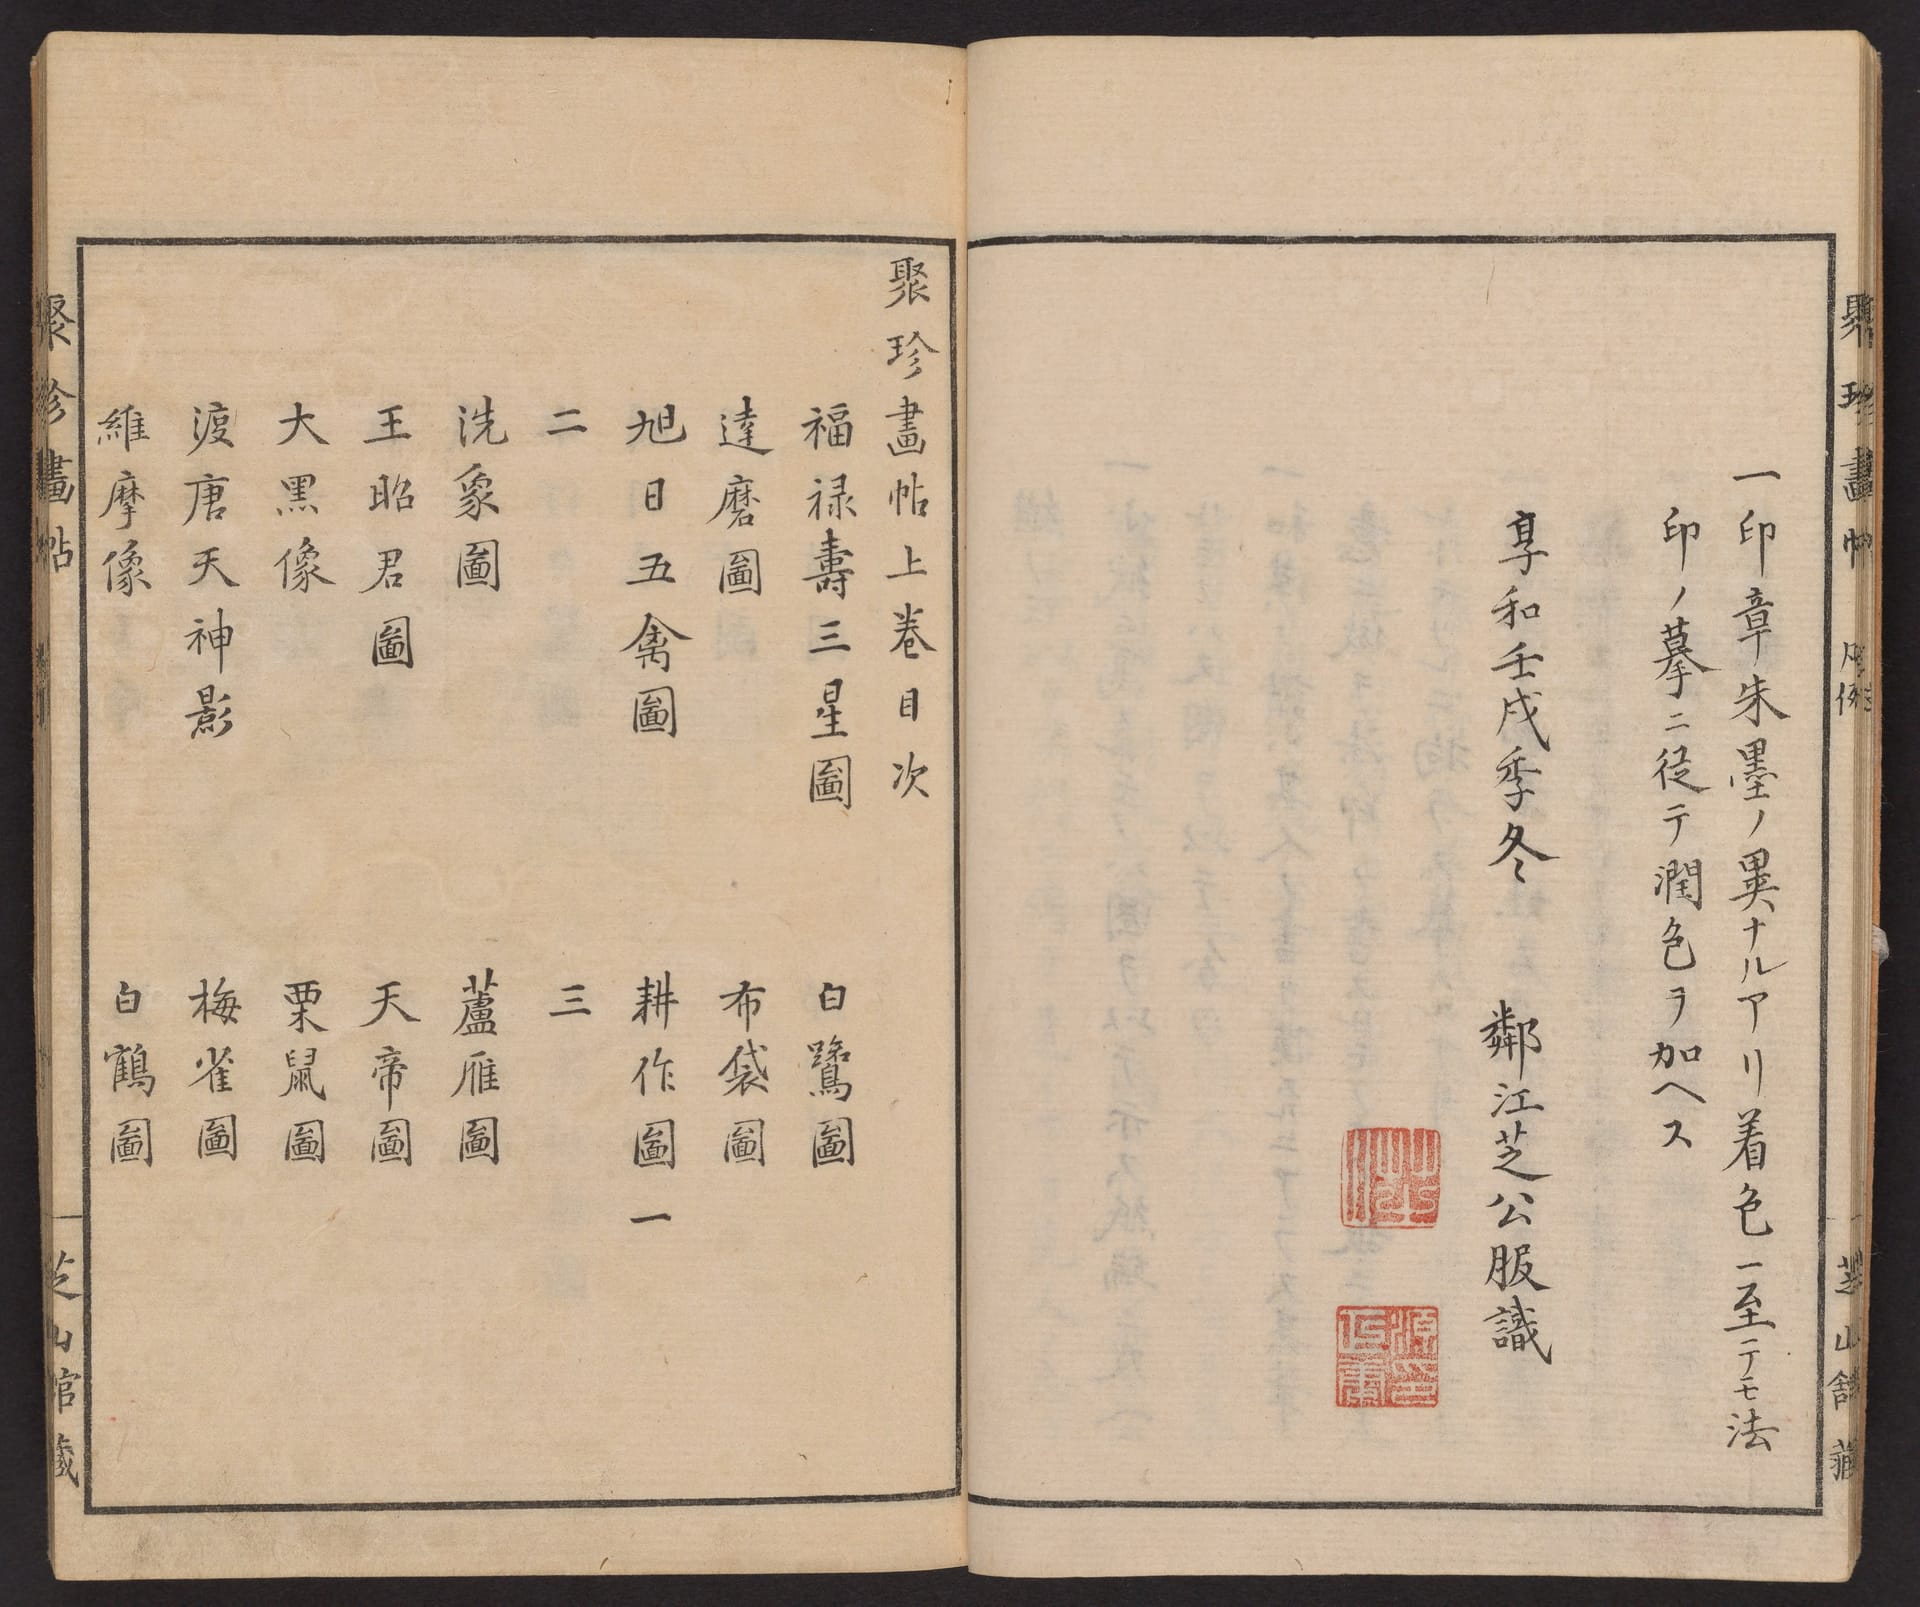 一印章朱墨ノ異ナルアリ着色ニ至テモ法
印ノ摹ニ従テ潤色ヲ加ヘス
享和壬戌季冬　鄰江芝公服識
聚珍畫帖上巻目次
福禄壽三星圖　白鷺圖
達磨圖　布袋圖
旭日五禽圖　耕作圖一
二　三
洗象圖　蘆雁圖
王昭君圖　天帝圖
大黒像　栗鼠圖
渡唐天神影　梅雀圖
維摩像　白鶴圖
聚珍畫帖
芝山館蔵